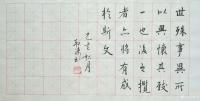 世殊事異所
以興懷其致
一也後之攬
者亦將有感
於斯文
己亥秋月